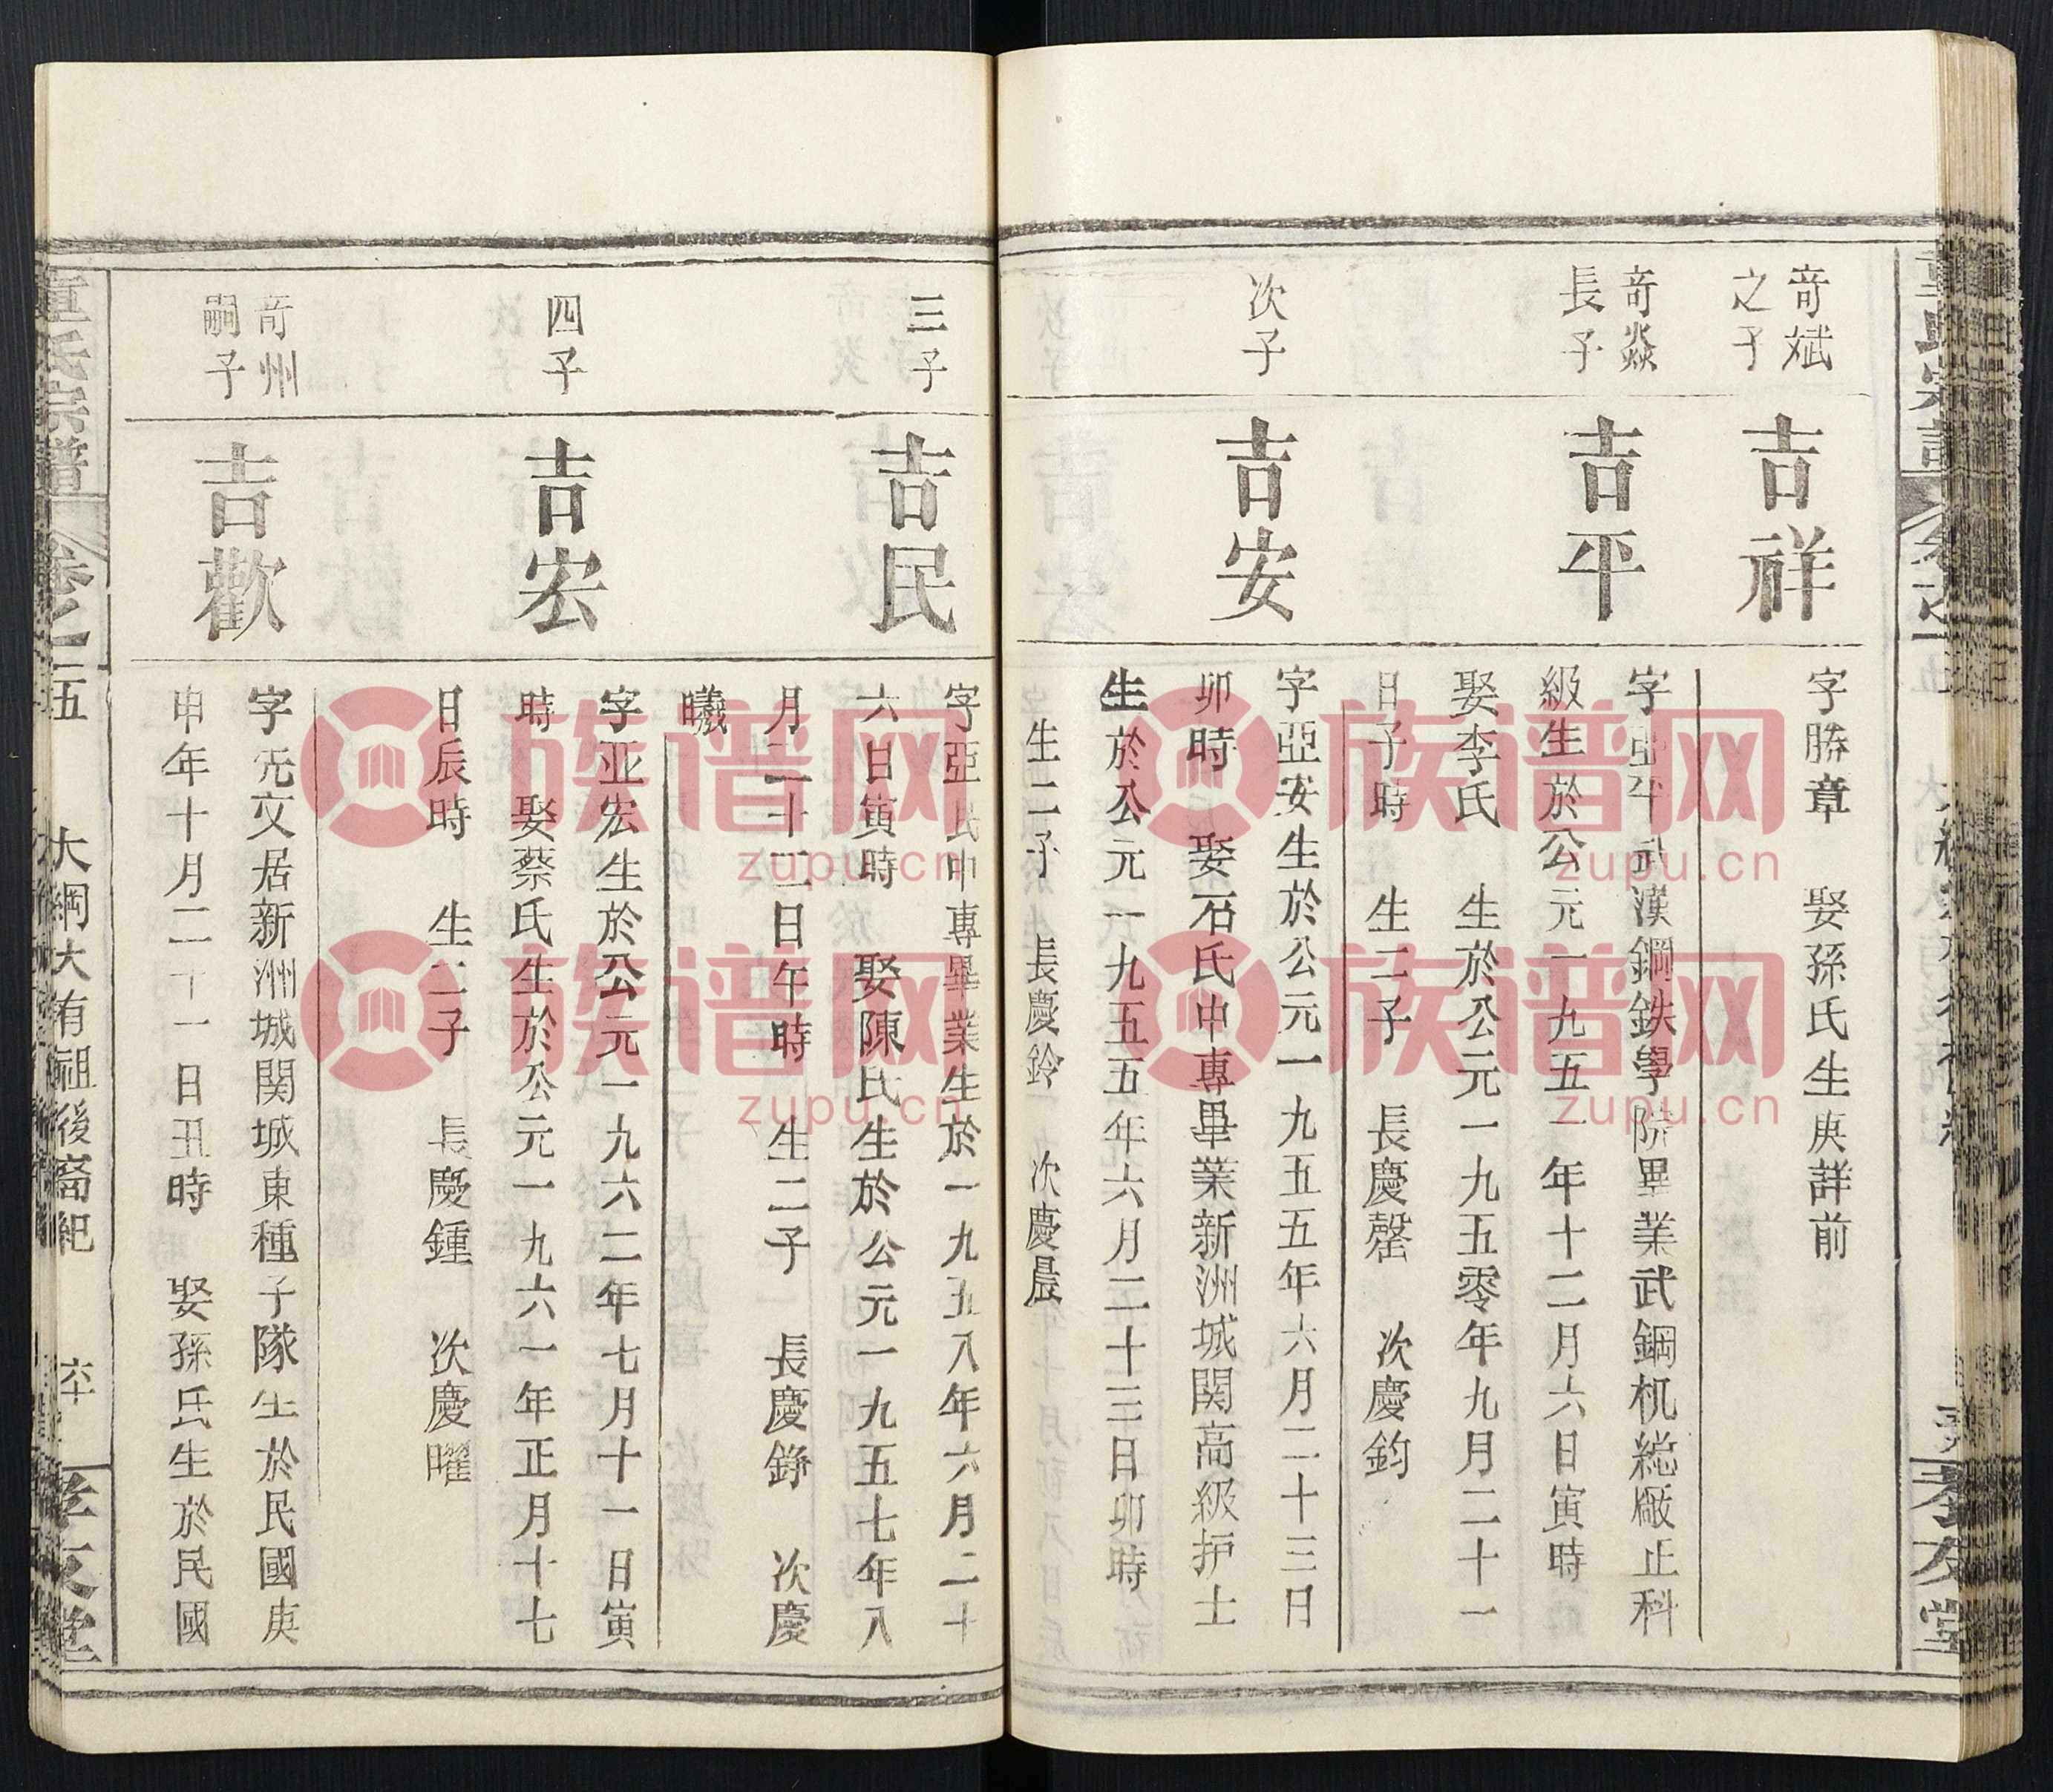 奇斌
之子
吉祥
字勝章　娶孫氏生庚詳前
奇焱
長子
吉平
字亞平武漢鋼鉄學院畢業武鋼机総廠正科
級生於公元一九五一年十二月六日寅時
娶李氏　生於公元一九五零年九月二十一
日子時　生二子　長慶罄　次慶鈞
次子
吉安
字亞安生於公元一九五五年六月二十三日
卯時　娶石氏中專畢業新洲城関高級护士
生於公元一九五五年六月二十三日卯時
生二子　長慶鈴　次慶晨
三子
吉民
字亞民中專畢業生於一九五八年六月二十
六日寅時　娶陳氏生於公元一九五七年八
月二十二日午時　生二子　長慶錚　次慶
曦
四子
吉宏
字亚宏生於公元一九六二年七月十一日寅
時　娶蔡氏生於公元一九六一年正月十七
日辰時　生二子　長慶鍾　次慶曜
奇州
嗣子
吉歡
字旡文居新洲城関城東種子隊生於民國庚
申年十月二十一日丑時　娶孫氏生於民國
童氏宗譜　卷之五　大綱大有祖後裔紀　孝友堂
族谱网
zupu.cn
族谱网
zupu.cn
族谱网
zupu.cn
族谱网
zupu.cn